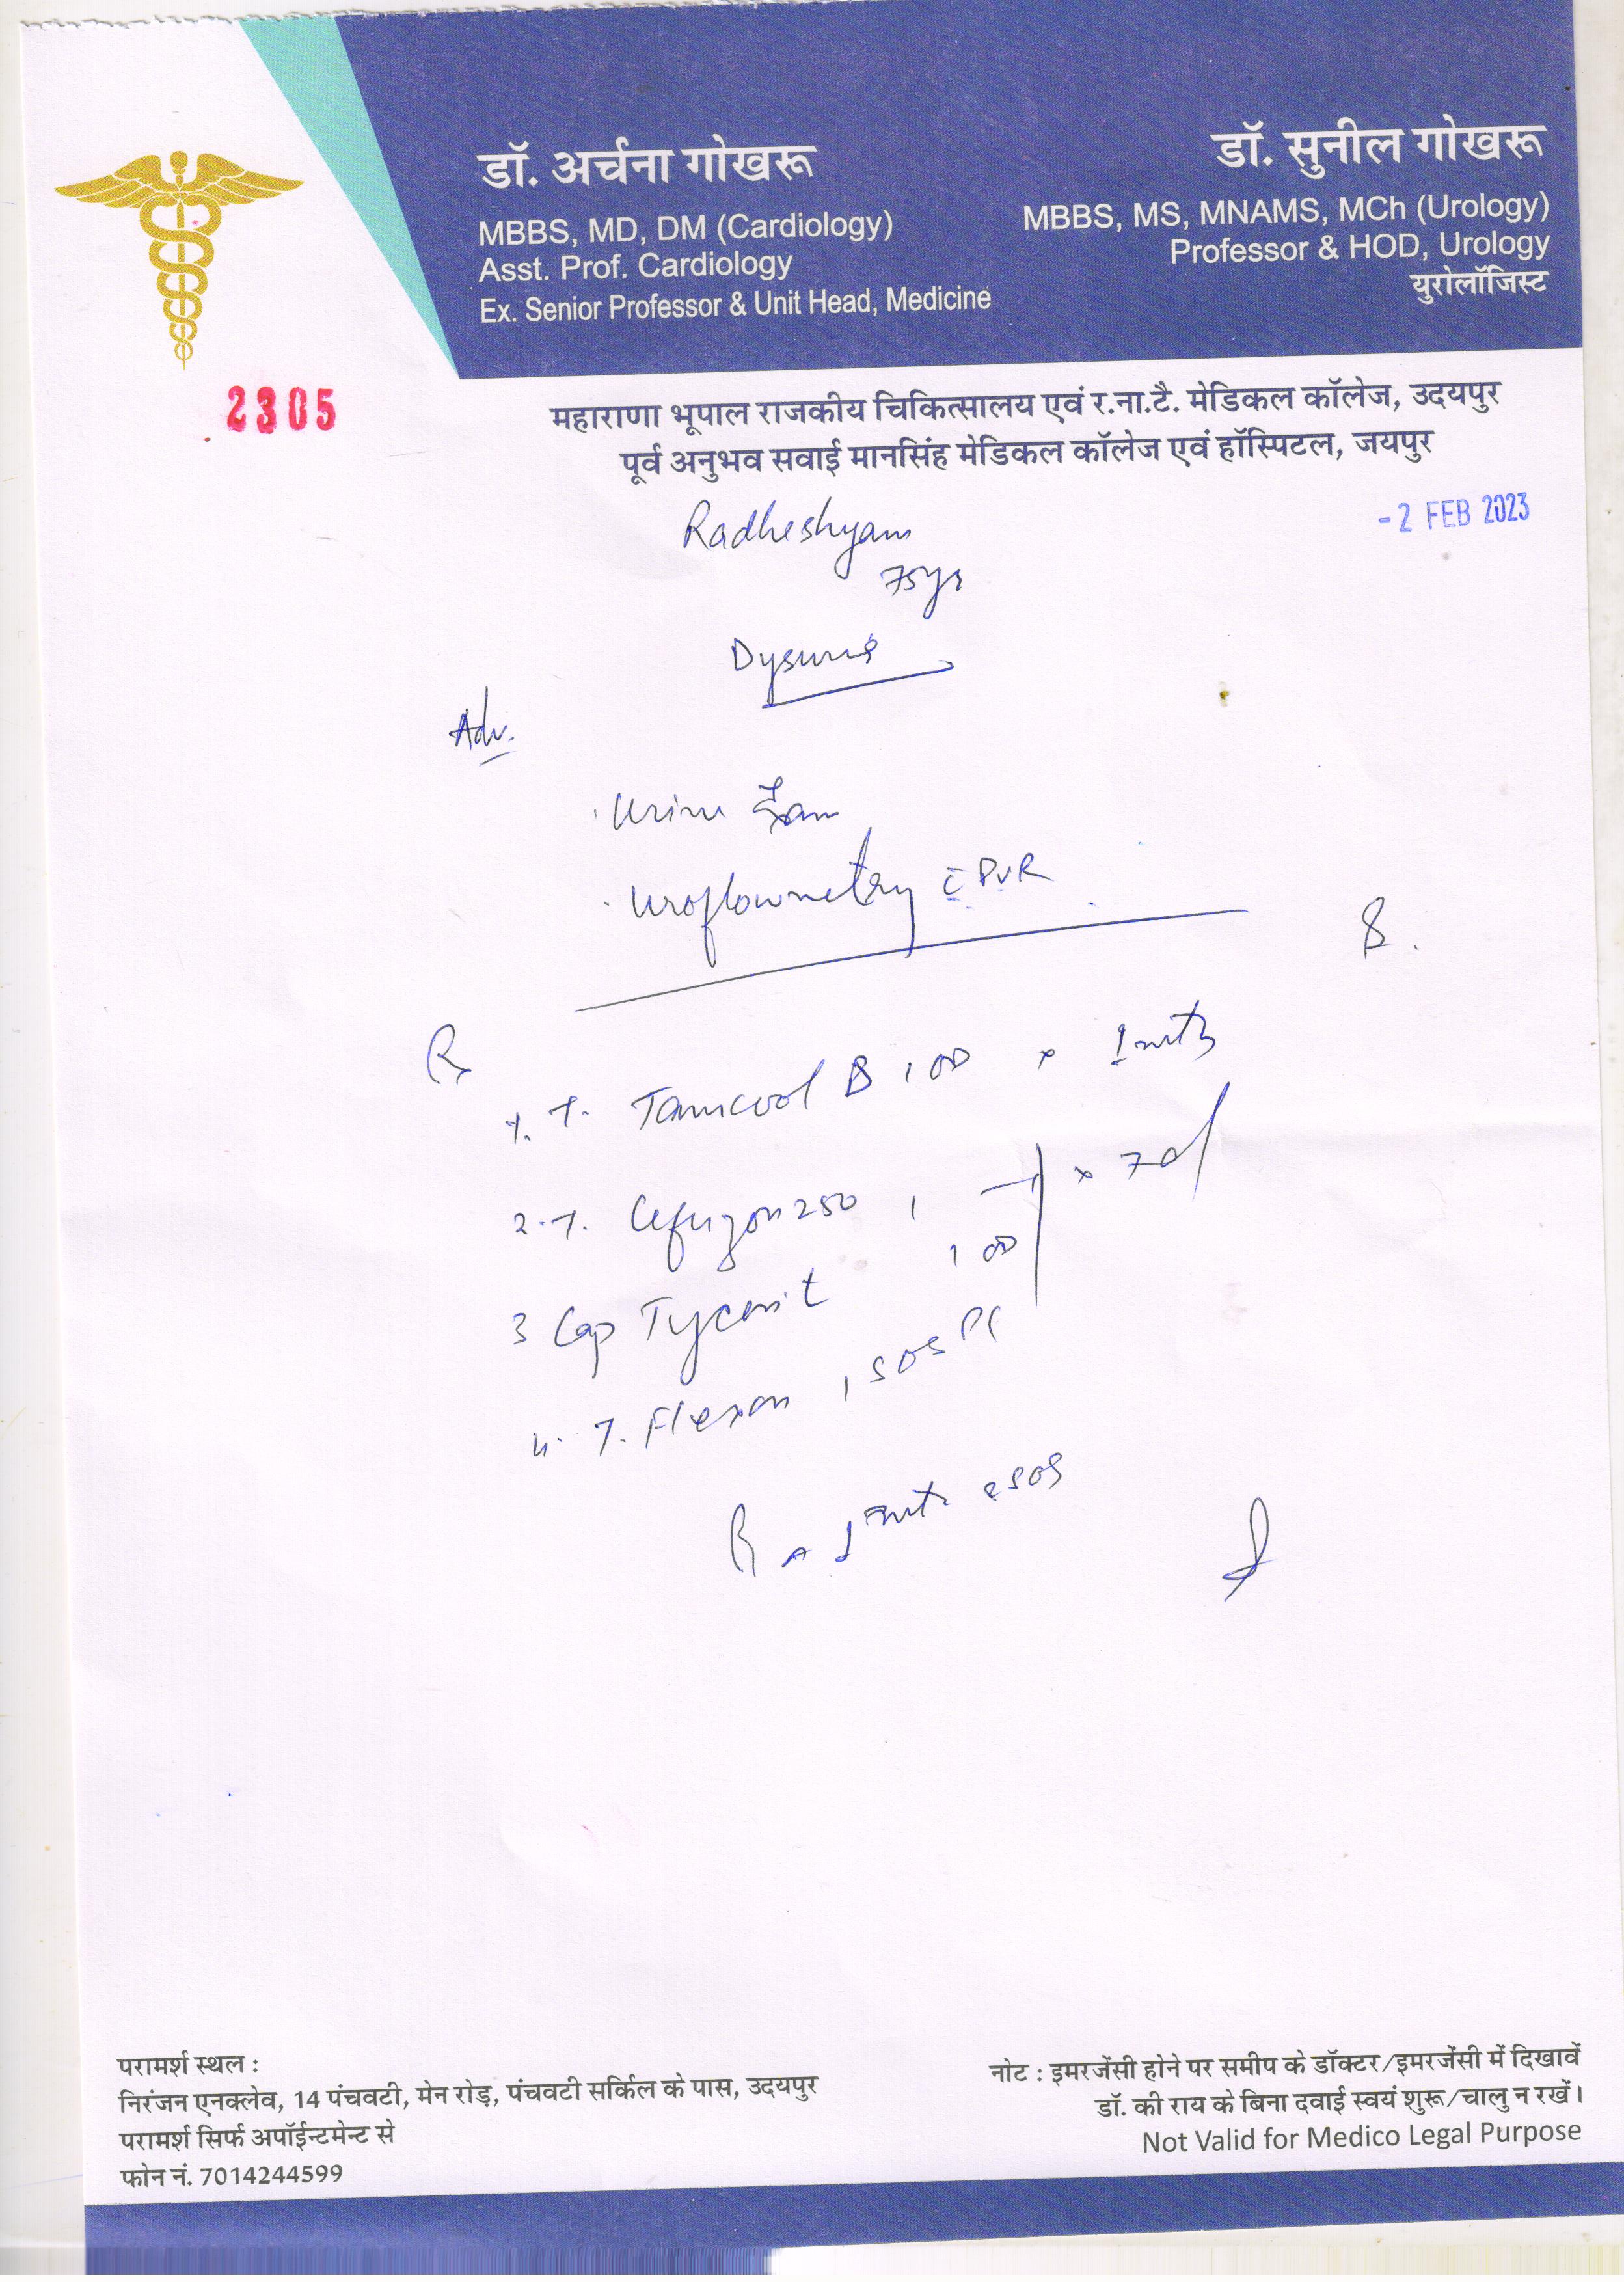 डॉ. अर्चना गोखरू
MBBS, MD, DM (Cardiology)
Asst. Prof. Cardiology
Ex. Senior Professor & Unit Head, Medicine
डॉ. सुनील गोखरू
MBBS, MS, MNAMS, MCh (Urology)
Professor & HOD, Urology
युरोलॉजिस्ट
2305
महाराणा भूपाल राजकीय चिकित्सालय एवं र.ना.टै. मेडिकल कॉलेज, उदयपुर
पूर्व अनुभव सवाई मानसिंह मेडिकल कॉलेज एवं हॉस्पिटल, जयपुर
-2 FEB 2023
Radheshyam
75yr
Adv.
Urine Exam
Uroflowmetry c̄ PVR
Rx
1. T. Tamcool B 1 OD x 1
2. T. 250 1 x 7d
3 Cap 1 OD
4. T. Flexon 1 SOS PC
परामर्श स्थल :
निरंजन एनक्लेव, 14 पंचवटी, मेन रोड़, पंचवटी सर्किल के पास, उदयपुर
परामर्श सिर्फ अपॉईन्टमेन्ट से
फोन नं. 7014244599
नोट : इमरजेंसी होने पर समीप के डॉक्टर/इमरजेंसी में दिखावें
डॉ. की राय के बिना दवाई स्वयं शुरू/चालु न रखें।
Not Valid for Medico Legal Purpose